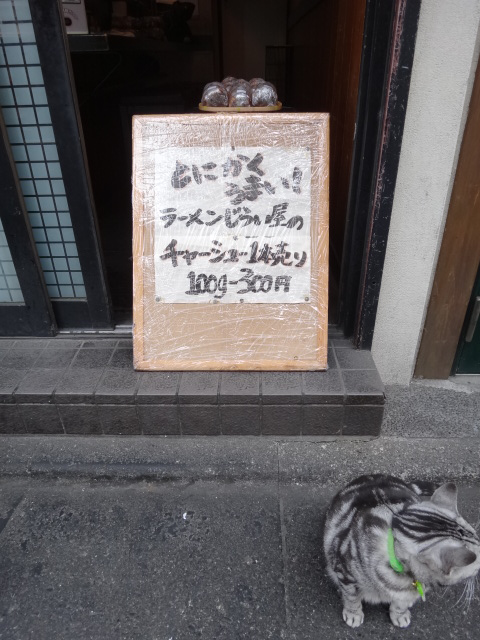 とにかく
うまい!!
ラーメンじらい屋の
チャーシュー1本売り
100g-300円